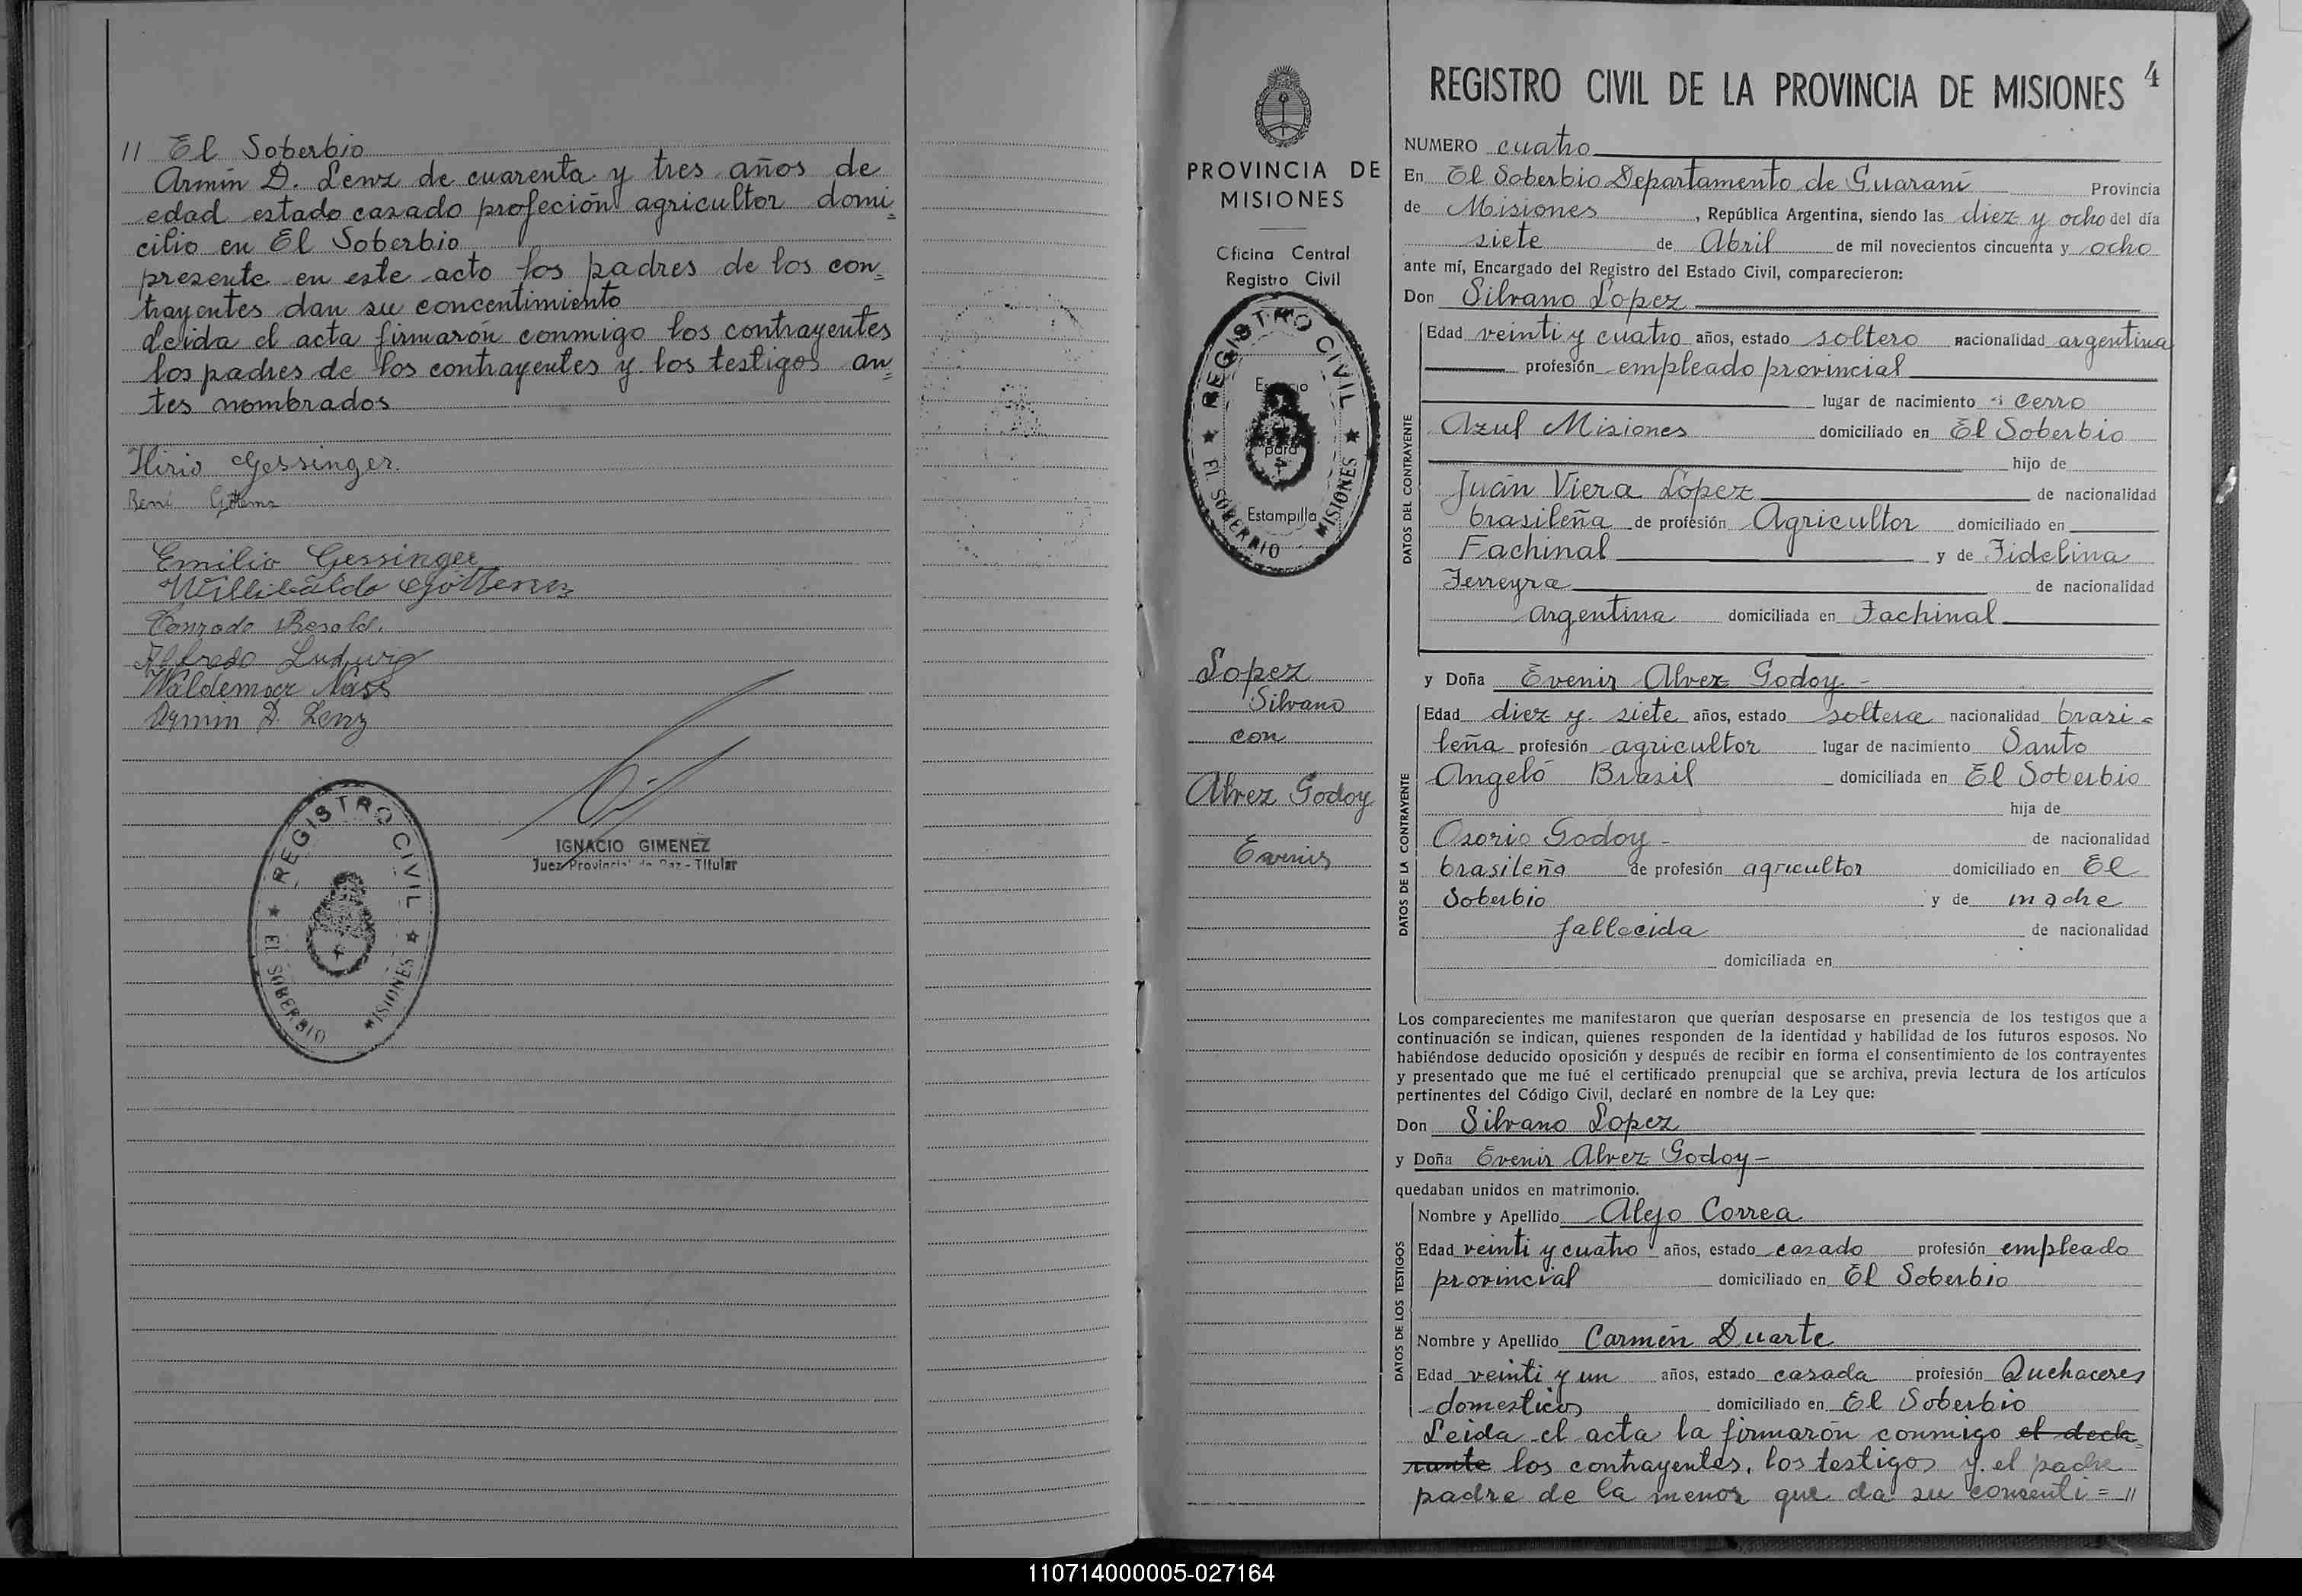 11 El Soberbio
Armin D. Lenz de cuarenta y tres años de
edad estado casado profeción agricultor domi=
cilio en El Soberbio
presente en este acto los padres de los con=
trayentes dan su concentimiento
Leida el acta firmarón conmigo los contrayentes
los padres de los contrayentes y los testigos an=
tes nombrados
Ilirio Gessinger.
René Göttems
Emilio Gessinger
Willibaldo Göttems
Conrado Besold.
Alfredo Ludwig
Waldemar Nass
Armin D. Lenz
IGNACIO GIMENEZ
Juez Provincial de Paz - Titular
REGISTRO CIVIL
★ EL SOBERBIO MISIONES ★
PROVINCIA DE
MISIONES
Oficina Central
Registro Civil
REGISTRO CIVIL
Espacio
para
Estampilla
★ EL SOBERBIO MISIONES ★
Lopez
Silvano
con
Alvez Godoy
Evenir
4
REGISTRO CIVIL DE LA PROVINCIA DE MISIONES
NUMERO cuatro
En El Soberbio Departamento de Guaraní Provincia
de Misiones, República Argentina, siendo las diez y ocho del día
siete de Abril de mil novecientos cincuenta y ocho
ante mí, Encargado del Registro del Estado Civil, comparecieron:
Don Silvano Lopez
DATOS DEL CONTRAYENTE
Edad veinti y cuatro años, estado soltero nacionalidad argentina
profesión empleado provincial
lugar de nacimiento Cerro
Azul Misiones domiciliado en El Soberbio
hijo de
Juán Viera López de nacionalidad
brasileña de profesión Agricultor domiciliado en
Fachinal y de Fidelina
Ferreyra de nacionalidad
Argentina domiciliada en Fachinal
y Doña Evenir Alvez Godoy -
DATOS DE LA CONTRAYENTE
Edad diez y siete años, estado soltera nacionalidad brasi=
leña profesión agricultor lugar de nacimiento Santo
Angeló Brasil domiciliada en El Soberbio
hija de
Osorio Godoy - de nacionalidad
brasileña de profesión agricultor domiciliado en El
Soberbio y de madre
fallecida de nacionalidad
domiciliada en
Los comparecientes me manifestaron que querían desposarse en presencia de los testigos que a
continuación se indican, quienes responden de la identidad y habilidad de los futuros esposos. No
habiéndose deducido oposición y después de recibir en forma el consentimiento de los contrayentes
y presentado que me fué el certificado prenupcial que se archiva, previa lectura de los artículos
pertinentes del Código Civil, declaré en nombre de la Ley que:
Don Silvano Lopez
y Doña Evenir Alvez Godoy -
quedaban unidos en matrimonio.
DATOS DE LOS TESTIGOS
Nombre y Apellido Alejo Correa
Edad veinti y cuatro años, estado casado profesión empleado
provincial domiciliado en El Soberbio
Nombre y Apellido Carmén Duarte
Edad veinti y un años, estado casada profesión Quehaceres
domesticos domiciliado en El Soberbio
Leida el acta la firmarón conmigo el decla=
rante los contrayentes, los testigos y el padre
padre de la menor que da su consenti = 11
110714000005-027164